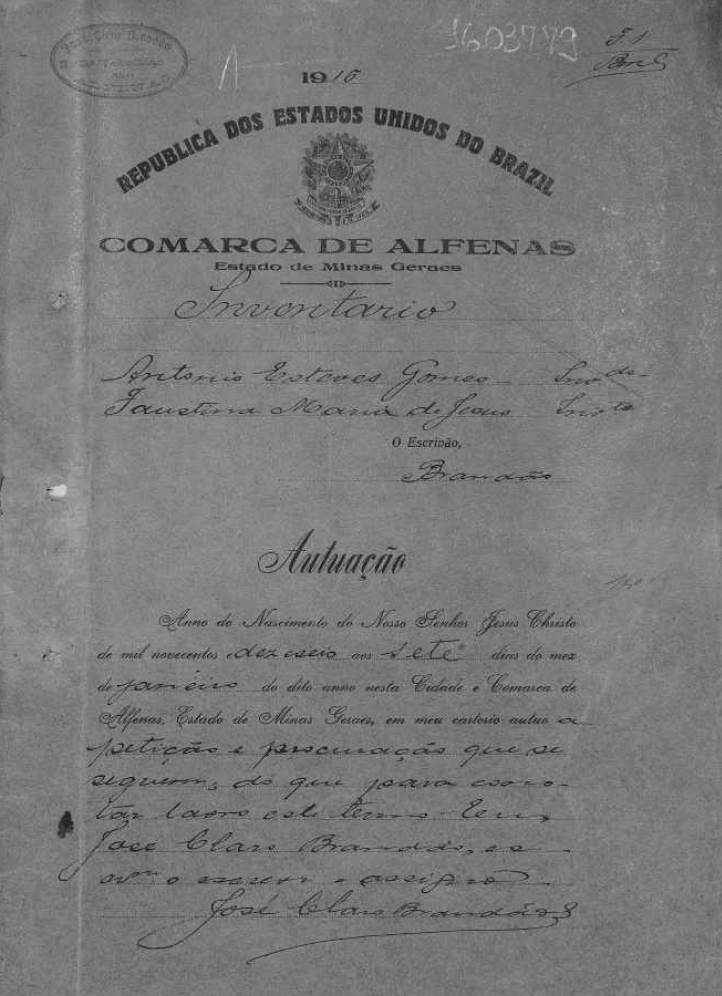 José Claro Brandão
A
1603779
F. 1
1916
REPUBLICA DOS ESTADOS UNIDOS DO BRAZIL
COMARCA DE ALFENAS
Estado de Minas Geraes
Inventario
Antonio Esteves Gomes - Invde
Faustina Maria de Jesus Invta
O Escrivão,
Brandão
Autuação
Anno do Nascimento do Nosso Senhor Jesus Christo
de mil novecentos e dezeseis aos sete dias do mez
de janeiro do dito anno nesta Cidade e Comarca de
Alfenas, Estado de Minas Geraes, em meu cartorio autuo a
petição e procuração que se
seguem; do que para cons-
tar lavro este termo. Eu,
José Claro Brandão, es
cvm o escrevi e assigno
José Claro Brandão